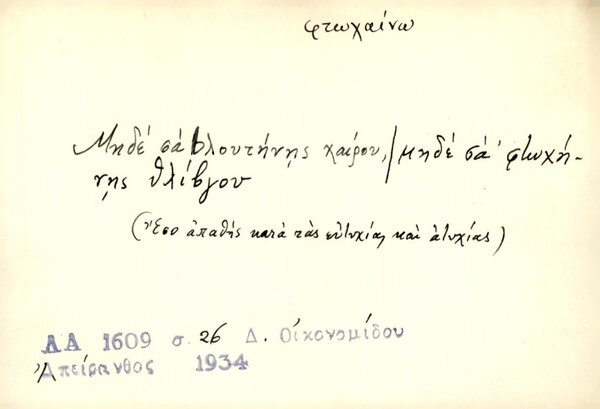 φτωχαίνω
Μηδέ σά bλουτήνῃς χαίρου, / μηδέ σά φτωχή-
νῃς θλίβγου
(ἔσο ἀπαθής κατά τάς εὐτυχίας καί ἀτυχίας)
ΛΑ 1609 σ. 26 Δ. Οἰκονομίδου
Ἀπείρανθος 1934